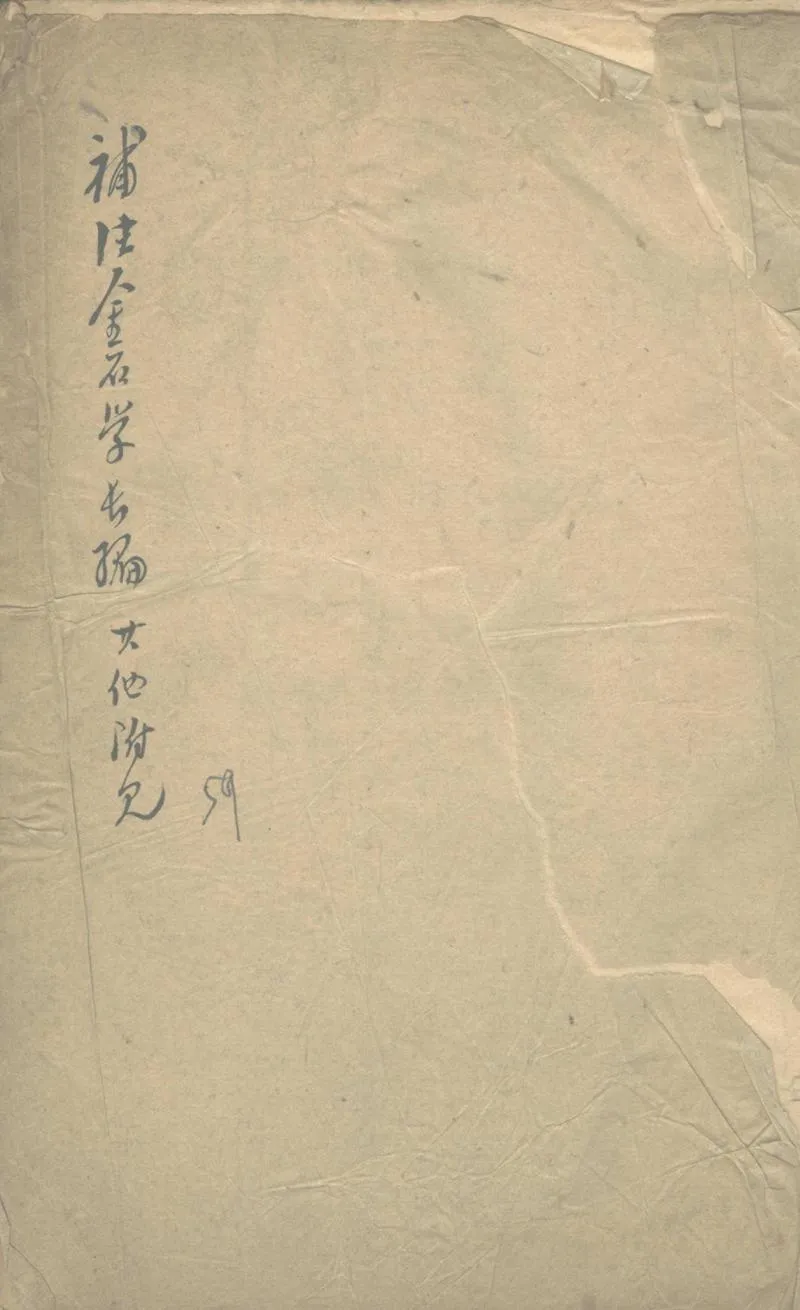 補注金石学长編 其他附见